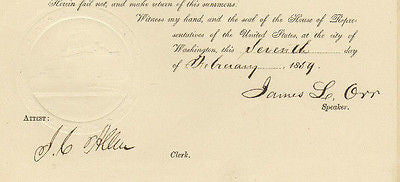 Herein fail not, and make return of this summons.
Witness my hand, and the seal of the House of Repre-
sentatives of the United States, at the city of
Washington, this Seventh day
of February 1859.
James L. Orr
Speaker.
ATTEST:
J. C. Allen
Clerk.